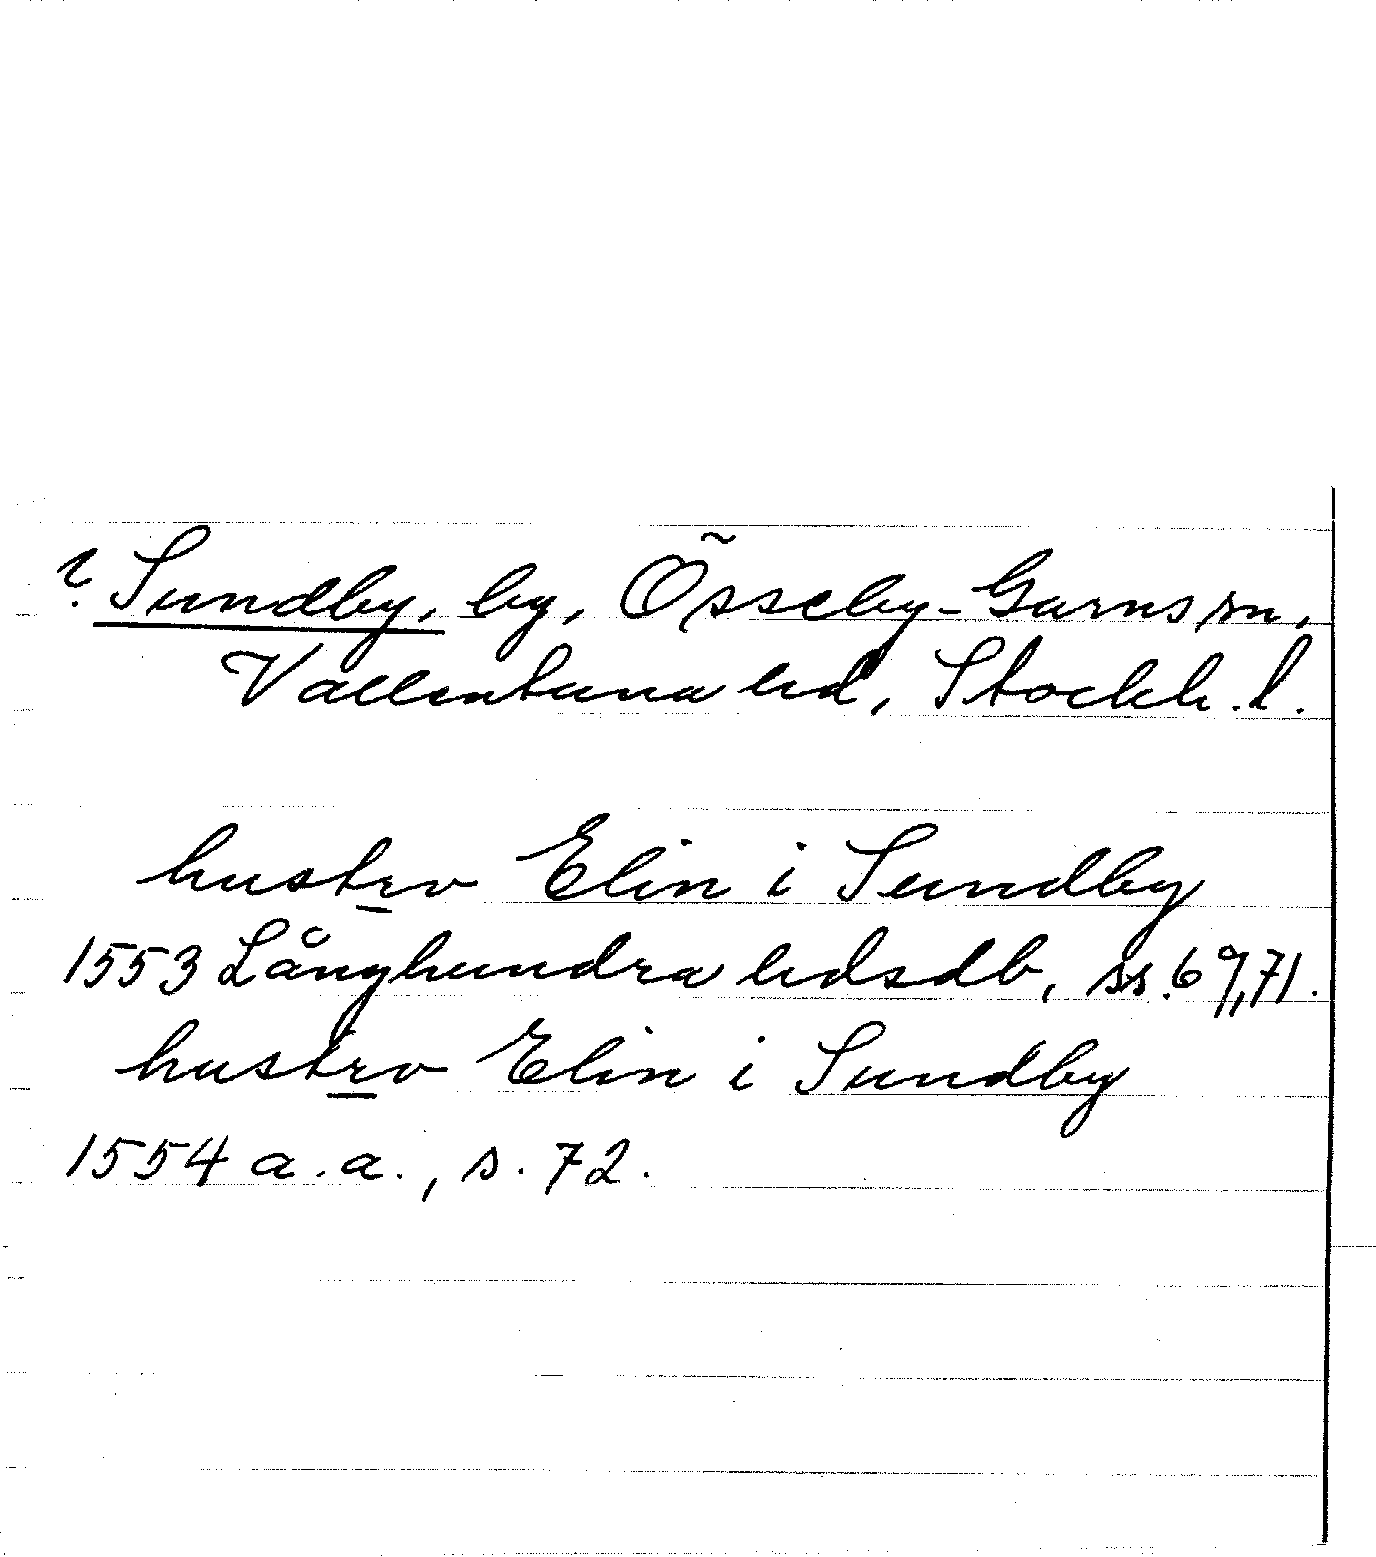 ? Sundby, by, Össeby-Garns sn,
Vallentuna hd, Stockh. l.
hustrv Elin i Sundby
1553 Långhundra hdsdb, ss. 69, 71.
hustrv Elin i Sundby
1554 a.a., s. 72.